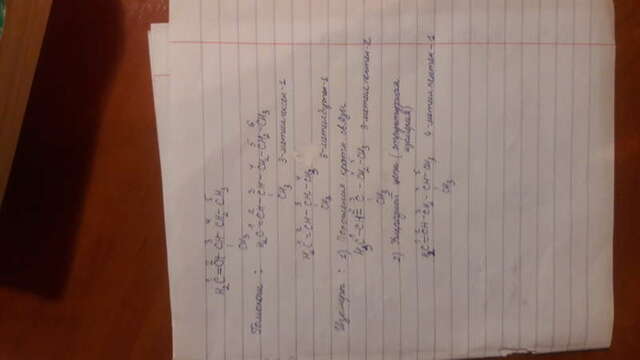 1 2 3 4 5
H2C=CH-CH-CH2-CH3
CH3
Гомологи:
1 2 3 4 5 6
H2C=CH-CH-CH2-CH2-CH3
CH3 3-метилгексен-1
1 2 3 4
H2C=CH-CH-CH3
CH3 3-метилбутен-1
Изомеры: 1) Положения кратн. связи
1 2 3 4 5
H3C-CH=C-CH2-CH3 3-метилпентен-2
CH3
2) Углеродной цепи (структурная изомерия)
1 2 3 4 5
H2C=CH-CH2-CH-CH3 4-метилпентен-1
CH3